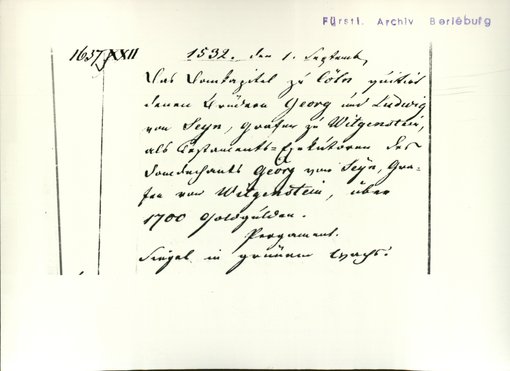 Fürstl. Archiv Berleburg
1657 XXII
1532. den 1. Septemb.
Das Domkapitel zu Cöln quittirt
denen Brüdern Georg und Ludwig
von Seyn, Grafen zu Witgenstein,
als Testaments-Exekutoren des
Domdechants Georg von Seyn, Gra-
fen von Witgenstein, über
1700 Goldgulden.
Pergament.
Siegel in grünem Wachs.